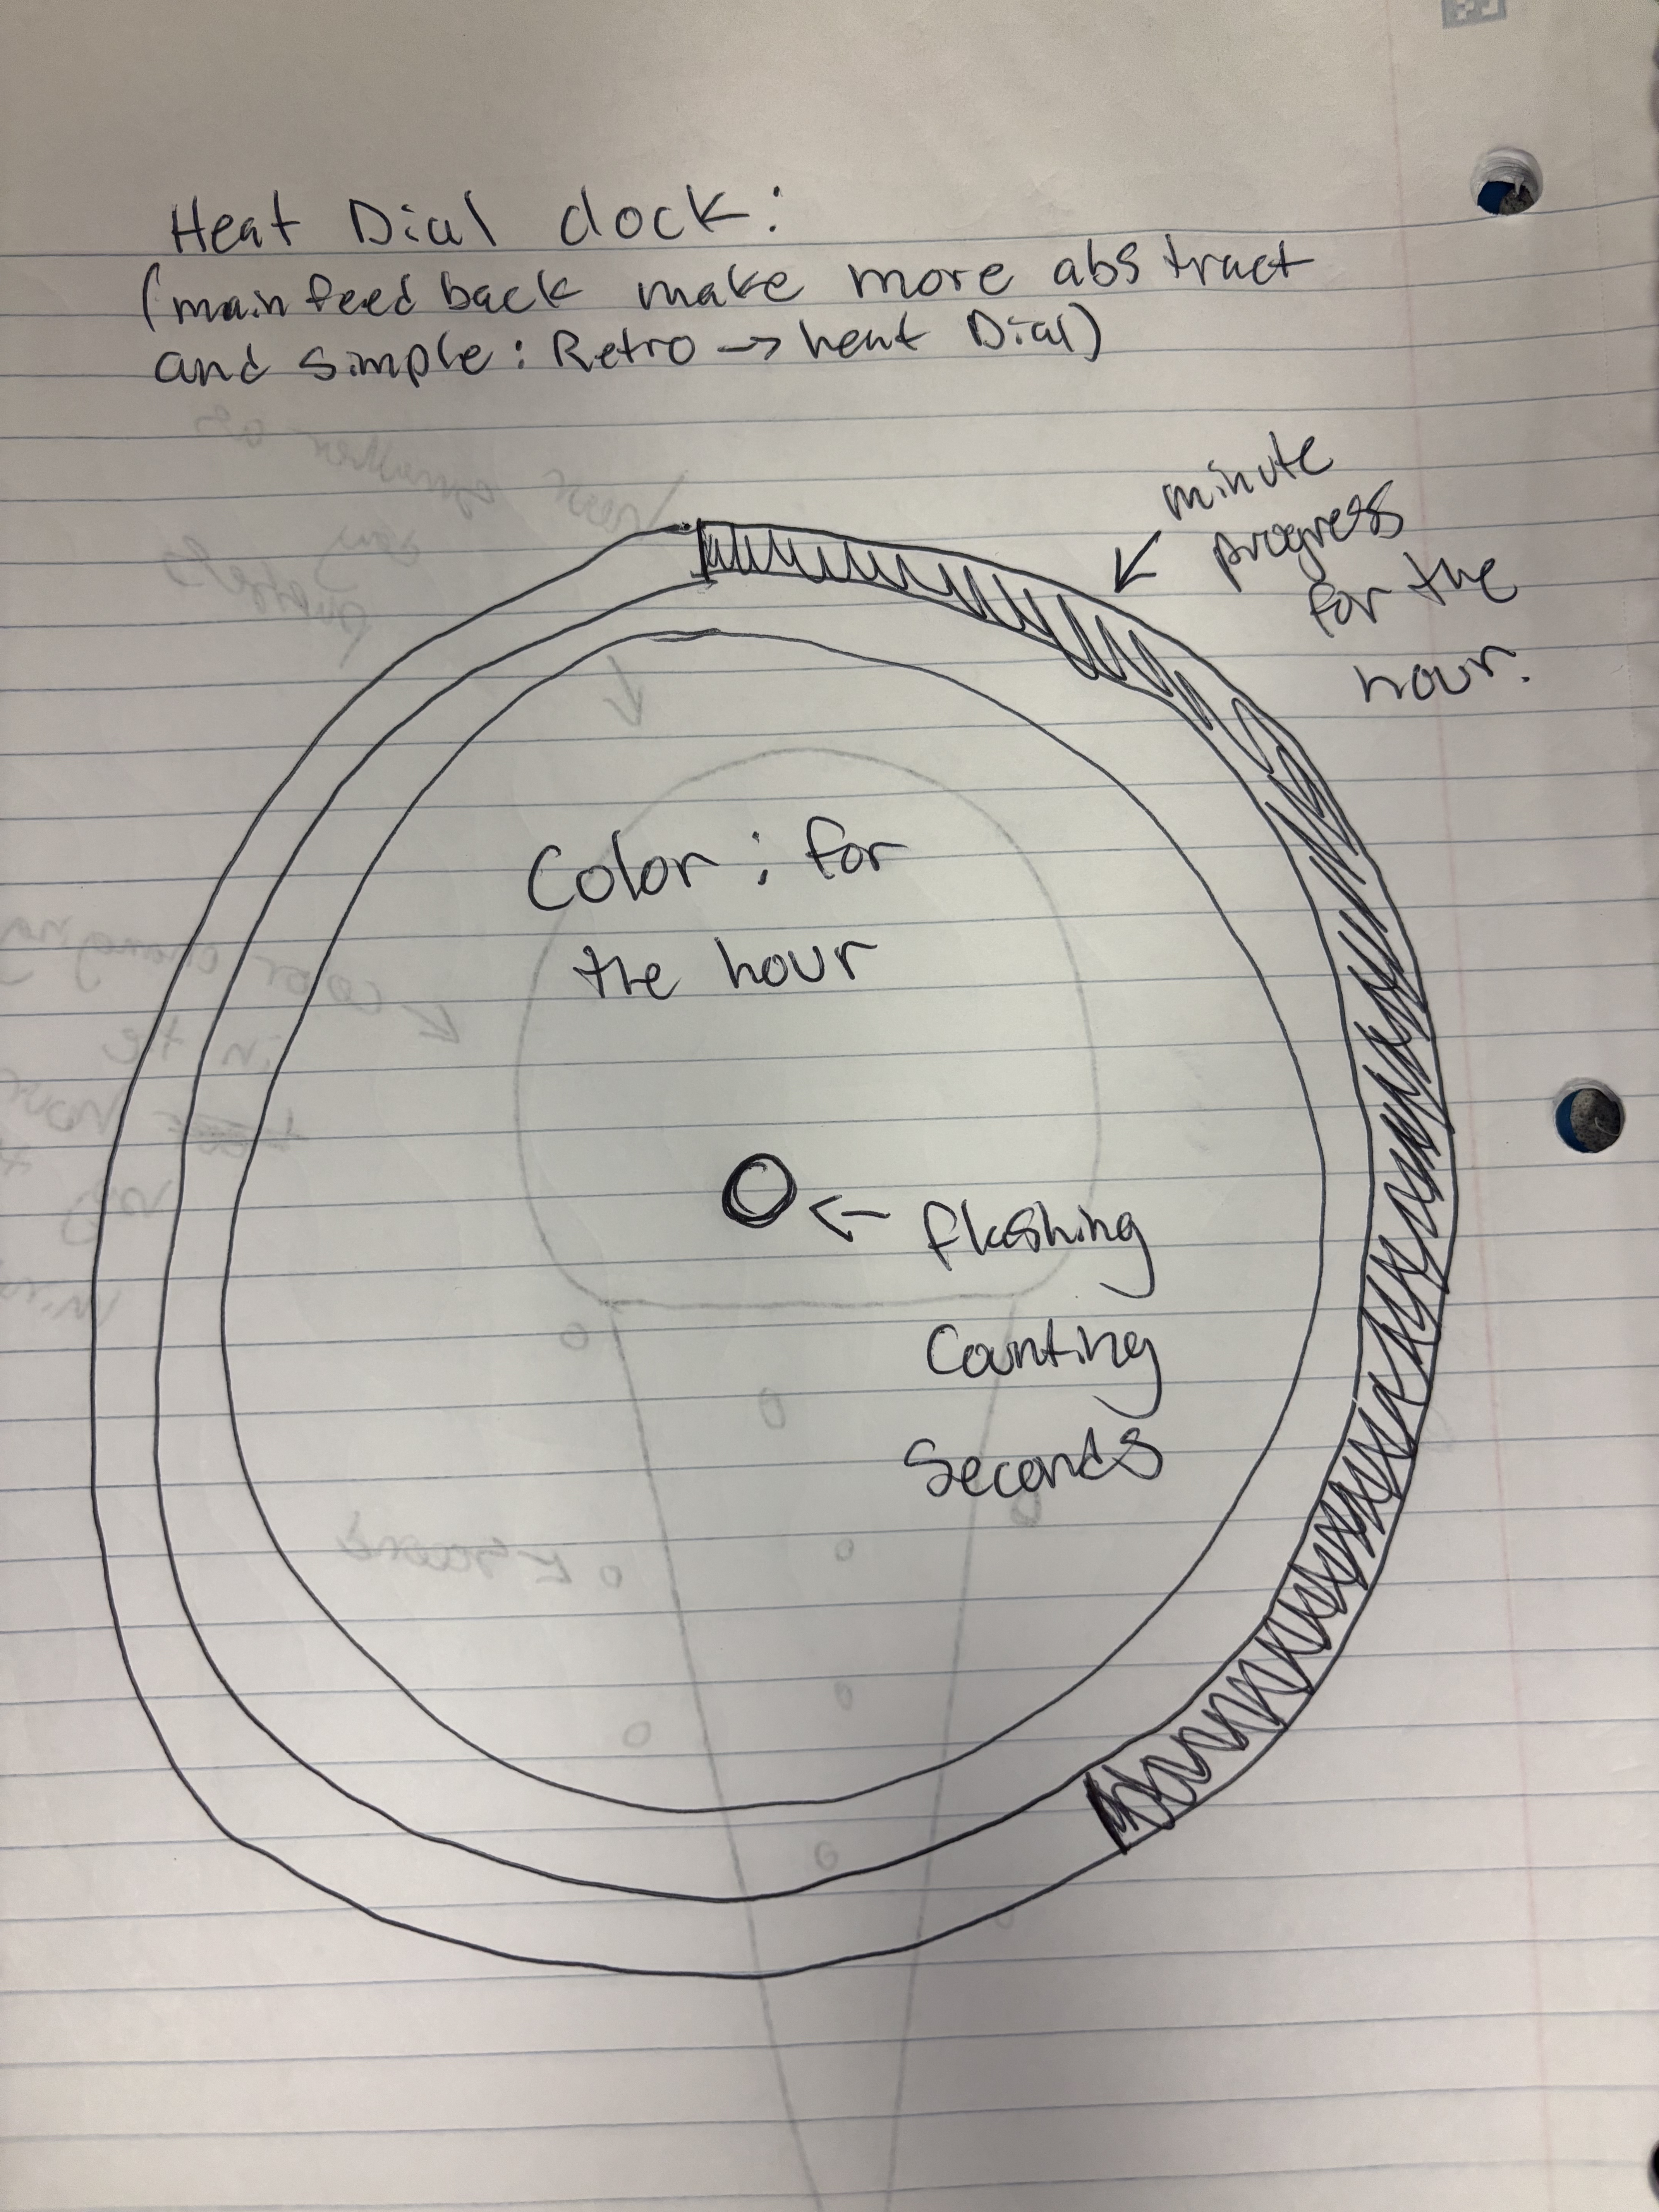 Heat Dial clock:
(main feed back make more abstract
and simple: Retro → heat Dial)
minute
progress
for the
hour.
Color; for
the hour
← flashing
Counting
Seconds